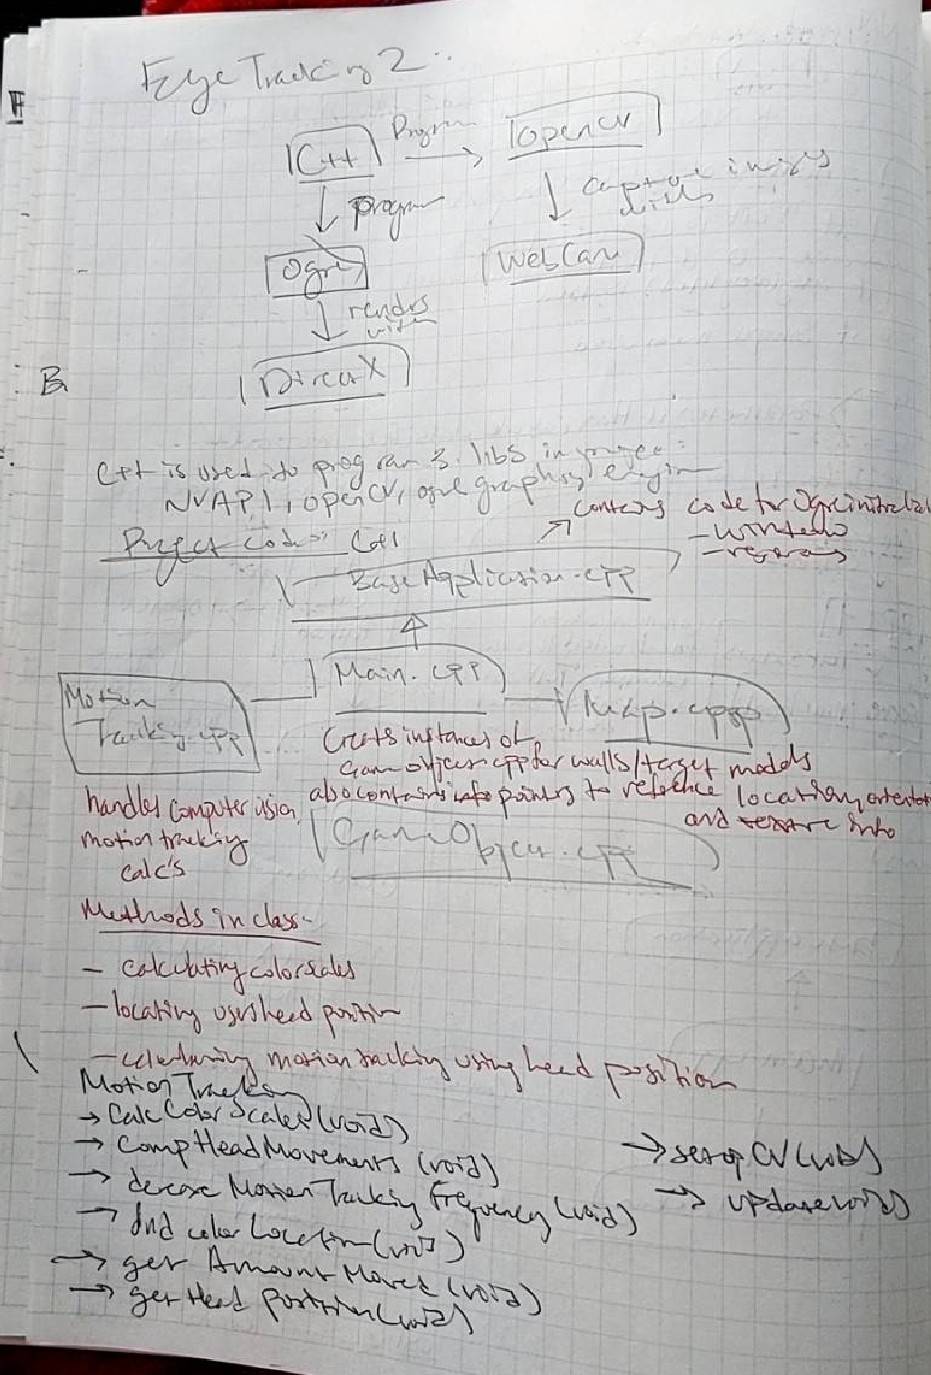 Eye Tracking 2:
C++ Program → OpenCV
↓ program
↓ Capture
Ogre
WebCam
↓ renders with
DirectX
B
C++ is used to program 3 libs in
NVAPI, OpenCV, ogre graphics engin
contains code for Ogre
Project Code: C++
- window
BaseApplication.cpp
Main.cpp
Motion
Tracking.cpp
Map.cpp
Creats instances of
Gameobject.cpp for walls/target models
also contains info pointers to reference location,
and texture info
handles computer vision
motion tracking
calc's
GameObject.cpp
Methods in class-
- calculating color scales
- locating users head position
- motion tracking using head position
Motion Tracking
→ CalcColorScales(void)
→ CompHeadMovements (void)
→ setup CV(void)
→ Motion Tracking Frequency (void)
→ update(void)
→ find color Location(void)
→ get Amount Moved (void)
→ get Head Position(void)